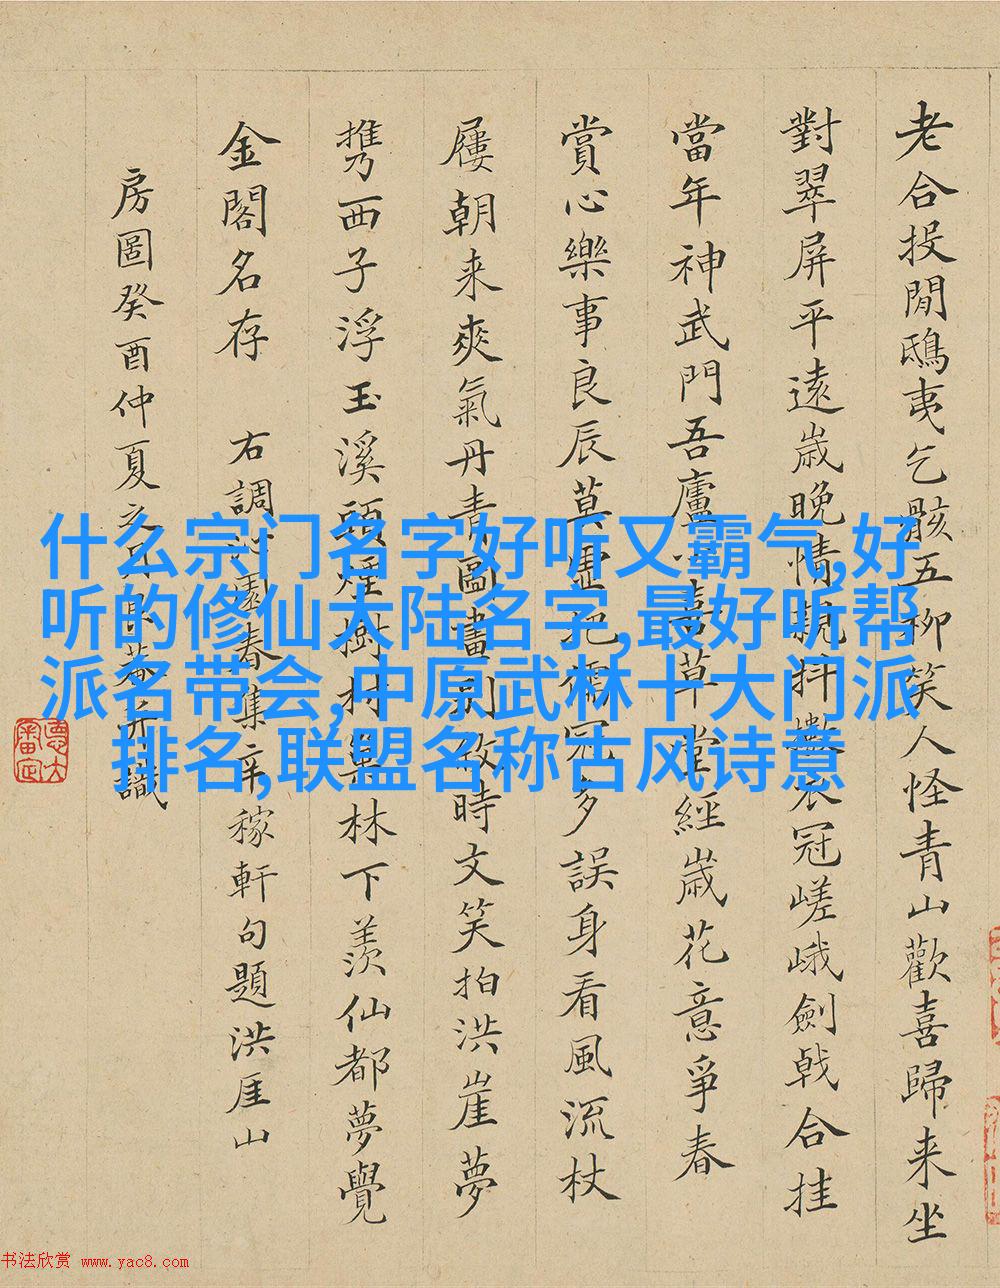 什么宗门名字好听又霸气,好
听的修仙大陆名字,最好听帮
派名带会,中原武林十大门派
排名,联盟名称古风诗意
老合投閒鴟夷乞骸五柳笑人怪青山歡喜歸来坐
對翠屏平遠歲晚情親抖擻衣冠嵯峨劍戟合挂
當年神武門吾廬喜草堂經歲花意爭春
賞心樂事良辰莫虛抱儒冠多誤身看風流杖
屨朝来爽氣丹青圖畫時文笑拍洪崖夢
携西子浮玉溪頭煙樹村林下羨仙都夢覺
金閣名存 右調沁園春集辛稼軒句題洪厓山
房圖癸酉仲夏之月并識
书法欣赏 www.yac8.com